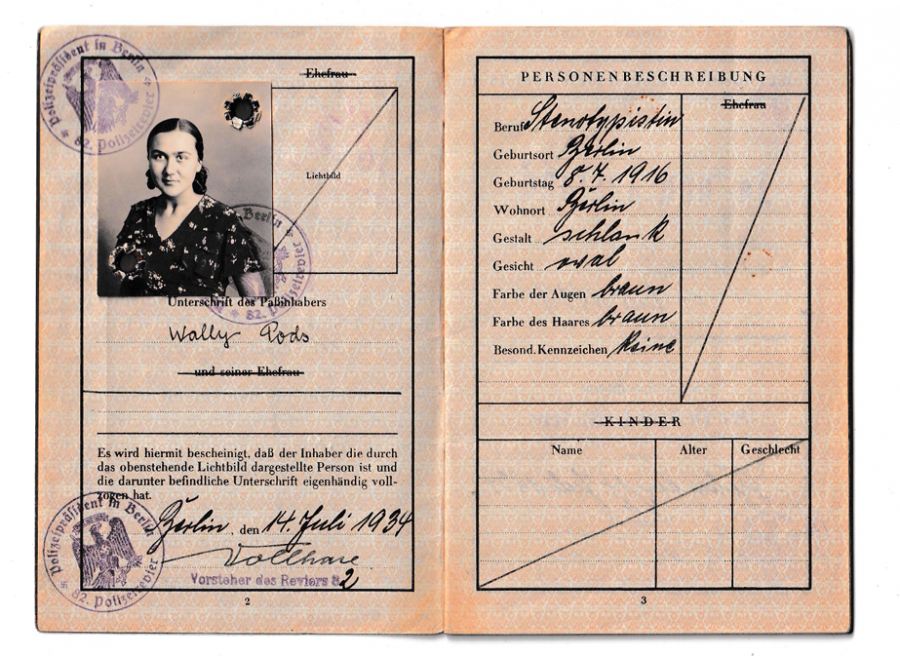 Polizeipräsident in Berlin
* 82. Polizeirevier *
Ehefrau
Lichtbild
Berlin
82. Polizeirevier
Unterschrift des Paßinhabers
Wally Pods
und seiner Ehefrau
Es wird hiermit bescheinigt, daß der Inhaber die durch
das obenstehende Lichtbild dargestellte Person ist und
die darunter befindliche Unterschrift eigenhändig voll-
zogen hat.
Berlin, den 14. Juli 1934
Polizeipräsident in Berlin
* 82. Polizeirevier
Vorsteher des Reviers 82
2
PERSONENBESCHREIBUNG
Ehefrau
Beruf Stenotypistin
Geburtsort Berlin
Geburtstag 8.7.1916
Wohnort Berlin
Gestalt schlank
Gesicht oval
Farbe der Augen braun
Farbe des Haares braun
Besond. Kennzeichen keine
KINDER
Name Alter Geschlecht
3